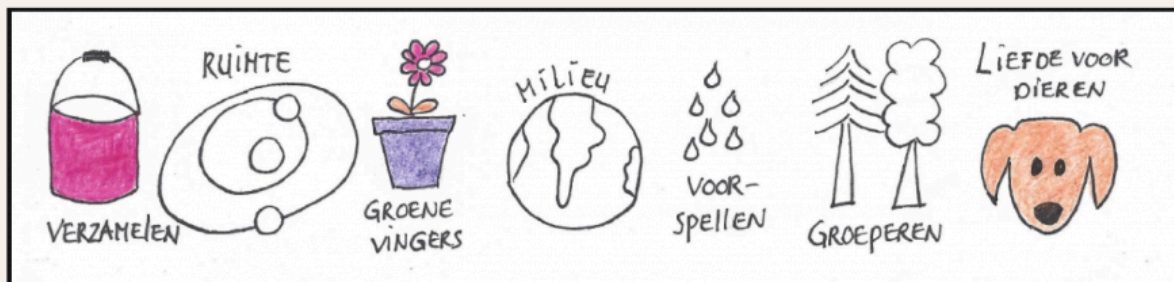 VERZAMELEN
RUIMTE
GROENE
VINGERS
MILIEU
VOOR-
SPELLEN
GROEPEREN
LIEFDE VOOR
DIEREN